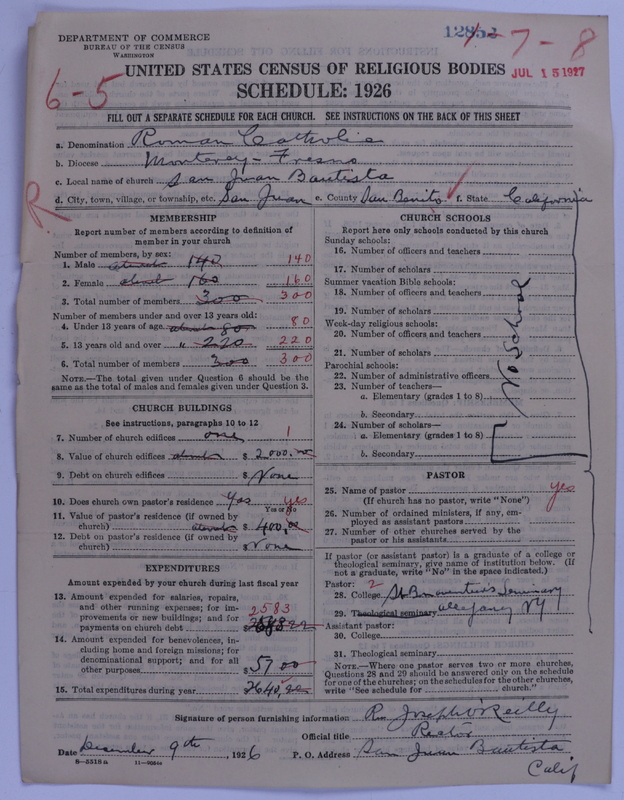 DEPARTMENT OF COMMERCE
BUREAU OF THE CENSUS
WASHINGTON
12852
7-8
6-5
UNITED STATES CENSUS OF RELIGIOUS BODIES
JUL 15 1927
SCHEDULE: 1926
FILL OUT A SEPARATE SCHEDULE FOR EACH CHURCH. SEE INSTRUCTIONS ON THE BACK OF THIS SHEET
a. Denomination Roman Catholic
b. Diocese Monterey-Fresno
c. Local name of church San Juan Bautista
R
d. City, town, village, or township, etc. San Juan e. County San Benito f. State California
MEMBERSHIP
Report number of members according to definition of member in your church
Number of members, by sex:
1. Male about 140 140
2. Female about 160 160
3. Total number of members 300 300
Number of members under and over 13 years old:
4. Under 13 years of age about 80 80
5. 13 years old and over " 220 220
6. Total number of members 300 300
NOTE.—The total given under Question 6 should be the same as the total of males and females given under Question 3.
CHURCH BUILDINGS
See instructions, paragraphs 10 to 12
7. Number of church edifices one 1
8. Value of church edifices about $ 2,000.00
9. Debt on church edifices $ None
10. Does church own pastor's residence Yes yes
Yes or No
11. Value of pastor's residence (if owned by church) about $ 400.00
12. Debt on pastor's residence (if owned by church) $ None
EXPENDITURES
Amount expended by your church during last fiscal year
13. Amount expended for salaries, repairs, and other running expenses; for improvements or new buildings; and for payments on church debt 2583
14. Amount expended for benevolences, including home and foreign missions; for denominational support; and for all other purposes $ 57.00
15. Total expenditures during year 2640.22
CHURCH SCHOOLS
Report here only schools conducted by this church
Sunday schools:
16. Number of officers and teachers
17. Number of scholars
Summer vacation Bible schools:
18. Number of officers and teachers
19. Number of scholars
Week-day religious schools:
20. Number of officers and teachers
21. Number of scholars
Parochial schools:
22. Number of administrative officers
23. Number of teachers—
a. Elementary (grades 1 to 8)
b. Secondary
24. Number of scholars—
a. Elementary (grades 1 to 8)
b. Secondary
No School
PASTOR
25. Name of pastor yes
(If church has no pastor, write "None")
26. Number of ordained ministers, if any, employed as assistant pastors
27. Number of other churches served by the pastor or his assistants
If pastor (or assistant pastor) is a graduate of a college or theological seminary, give name of institution below. (If not a graduate, write "No" in the space indicated.)
Pastor: 2
28. College St Bonaventure's Seminary
29. Theological seminary Allegany NY
Assistant pastor:
30. College
31. Theological seminary
NOTE.—Where one pastor serves two or more churches, Questions 28 and 29 should be answered only on the schedule for one of the churches; on the schedules for the other churches, write "See schedule for church."
Signature of person furnishing information Rev Joseph O'Reilly
Official title Rector
Date December 9th, 1926 P. O. Address San Juan Bautista
Calif
8—5518 a 11—90544